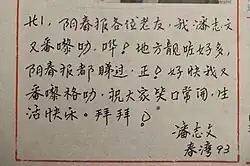 Hi，阳春报各位老友，我潘志文
又番嚟叻，哗！地方靓咗好多，
阳春报都睇过，正！好快我又
番嚟格叻，祝大家笑口常开，生
活快乐。拜拜！
潘志文
春湾93